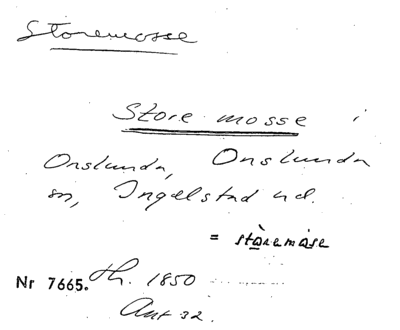 Storemosse
Store mosse i
Onslunda, Onslunda
sn, Ingelstad hd.
= stòremåse
Nr 7665. Th. 1850
Ant 32.